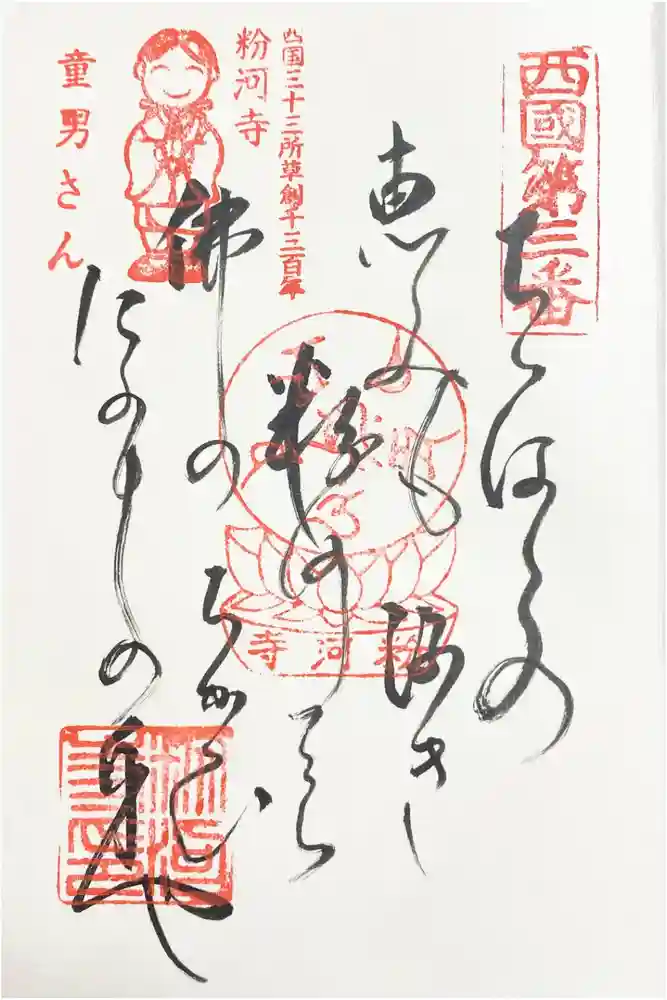 西國第三番
ちゝはゝの
恵みも深き
粉河てら
佛のちかひ
たのもしの身や
西国三十三所草創千三百年
粉河寺
童男さん
粉河寺